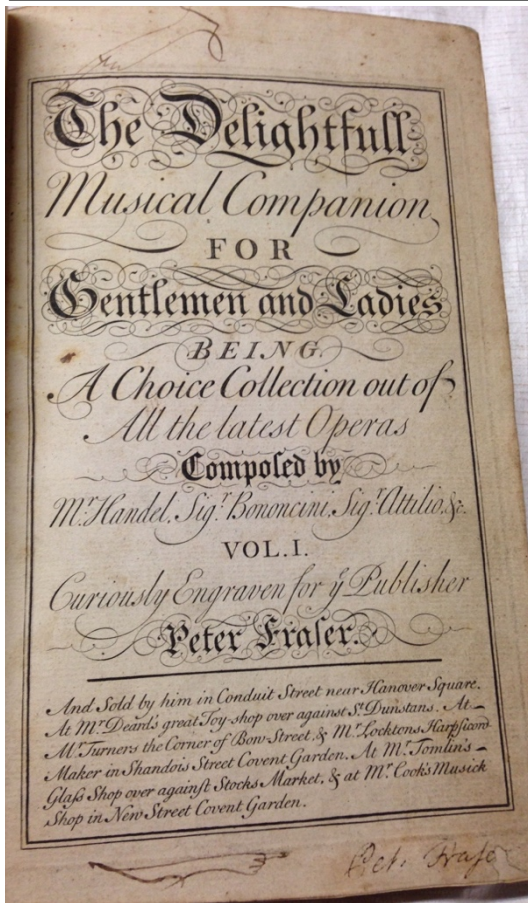 The Delightfull
Musical Companion
FOR
Gentlemen and Ladies
BEING
A Choice Collection out of
All the latest Operas
Compoſed by
Mr. Handel, Sigr. Bononcini, Sigr. Attilio, &c.
VOL. I.
Curiously Engraven for ye Publisher
Peter Fraſer.
And Sold by him in Conduit Street near Hanover Square.
At Mr. Deard's great Toy-shop over against St. Dunstans. At
Mr. Turners the Corner of Bow-Street, & Mr. Locktons Harpſicord
Maker in Shandois Street Covent Garden. At Mr. Tomlin's
Glaſs Shop over againſt Stocks Market, & at Mr. Cook's Musick
Shop in New Street Covent Garden.
Pet. Fraſe